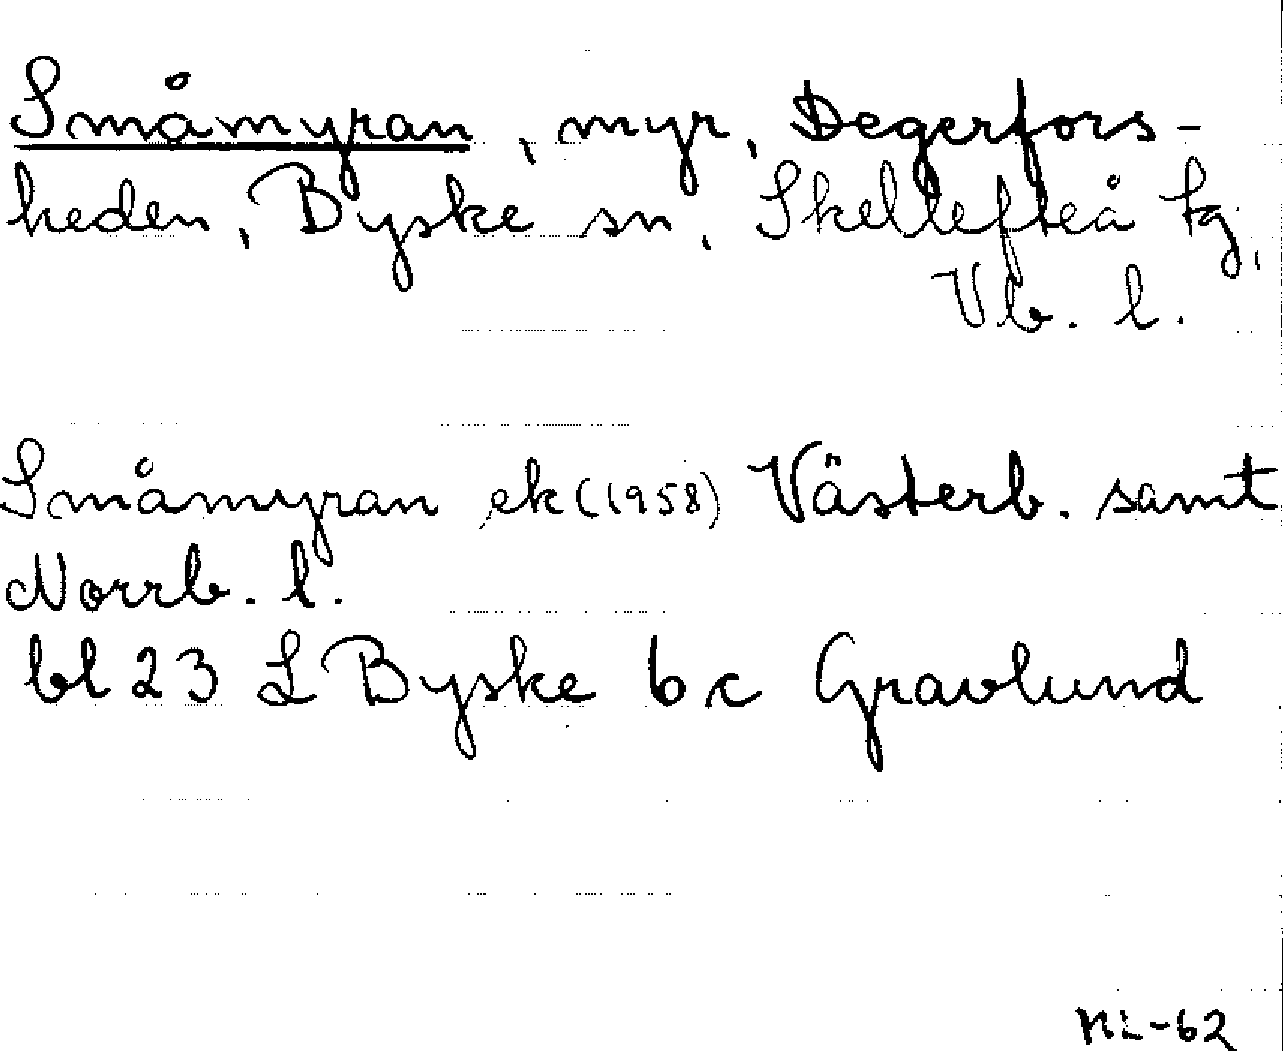 Småmyran, myr, Degerfors-
heden, Byske sn, Skellefteå tg,
Vb. l.
Småmyran, ek (1958) Västerb. samt
Norrb. l.
bl 23 L Byske 6 c Gravlund
NL-62